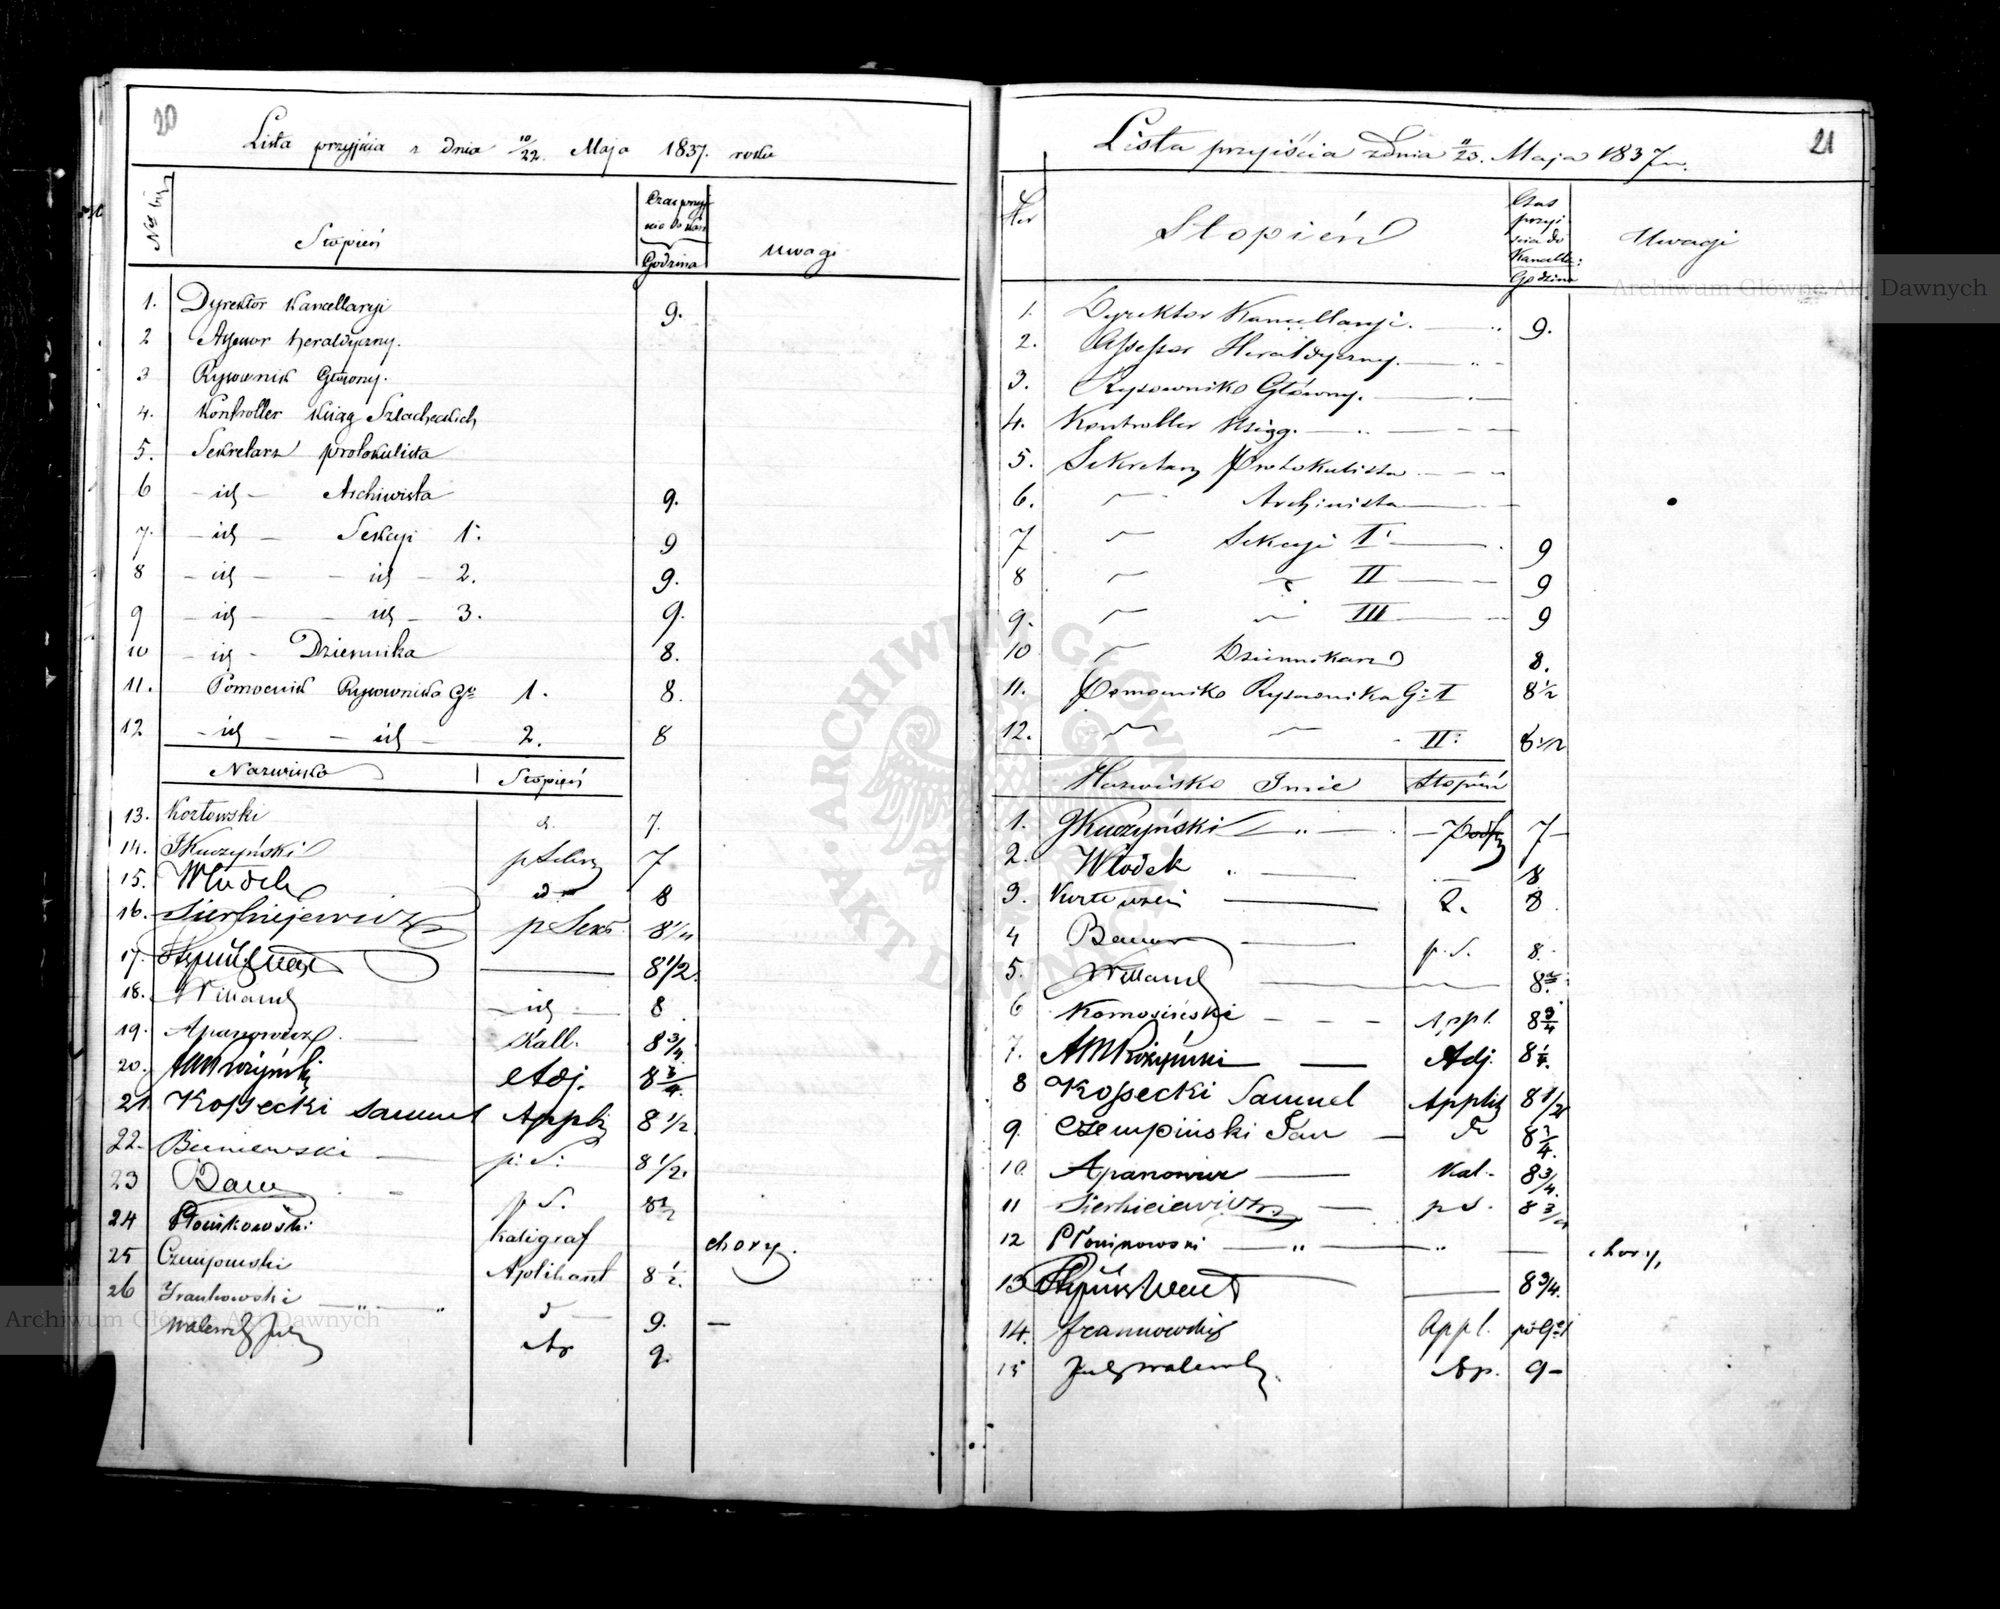 20
Lista przyjścia z dnia 10/22. Maja 1837. roku
Stopień
Godzina
Uwagi
1. Dyrektor Kancellaryi 9.
2 Assessor heraldyczny.
3 Rysownik Główny.
4. Kontroller Ksiąg Szlacheckich
5. Sekretarz protokulista
6 - id - Archiwista 9.
7. - id - Sekcyi 1: 9
8 - id - - id - 2. 9.
9 - id - - id - 3. 9.
10 - id - Dziennika 8.
11. Pomocnik Rysownika Gł: 1. 8.
12 - id - - id - 2. 8
Nazwisko Stopień
13. Kozłowski d. 7.
14. JKuczyński 7
15. Włodek 8
16. Sierhiejewicz p Sek.
17. 8 1/2.
18. Willand - id - 8
19. Apanowicz Kall. 8 3/4
20. Adj. 8 3/4.
21. Kossecki Samuel Applik 8 1/2
22. Bieniewski p: S: 8 1/2.
23 Bauer p S. 8 1/2
24 Płonikowski Kaligraf chory.
25 Aplikant 8 1/2.
26 9. —
Ap 9.
21
Lista przyiścia z dnia 11/23. Maja 1837 r.
Nr
Stopień
Czas przyiścia do Kancella:
Godzina
Uwagi
1. Dyrektor Kancellaryi. 9.
2. Assessor Heraldyczny.
3. Rysownik Główny.
4. Kontroller Ksiąg.
5. Sekretarz Protokulista
6. Archiwista
7 Sekcyi I: 9
8 II 9
9. III 9
10 Dziennikarz 8.
11. Pomocnik Rysownika G: I 8 1/2
12. II: 8 1/2
Nazwisko Imie Stopień
1. JKuczyński 7
2. Włodek 8
3. 8
4 Bauer p. S. 8.
5. Willand
6 Komosiński Appl. 8 3/4
7. Adj. 8 1/4.
8 Kossecki Samuel Applik 8 1/2
9. Czempiński Jan
10. Apanowicz Kal. 8 3/4.
11 Sierhieiewicz p S. 8 3/4
12 Płonikowski „ „ chory,
13 8 3/4.
14. Appl.
15 Ap. 9 -
Archiwum Główne Akt Dawnych
Archiwum Główne Akt Dawnych
ARCHIWUM GŁÓWNE AKT DAWNYCH